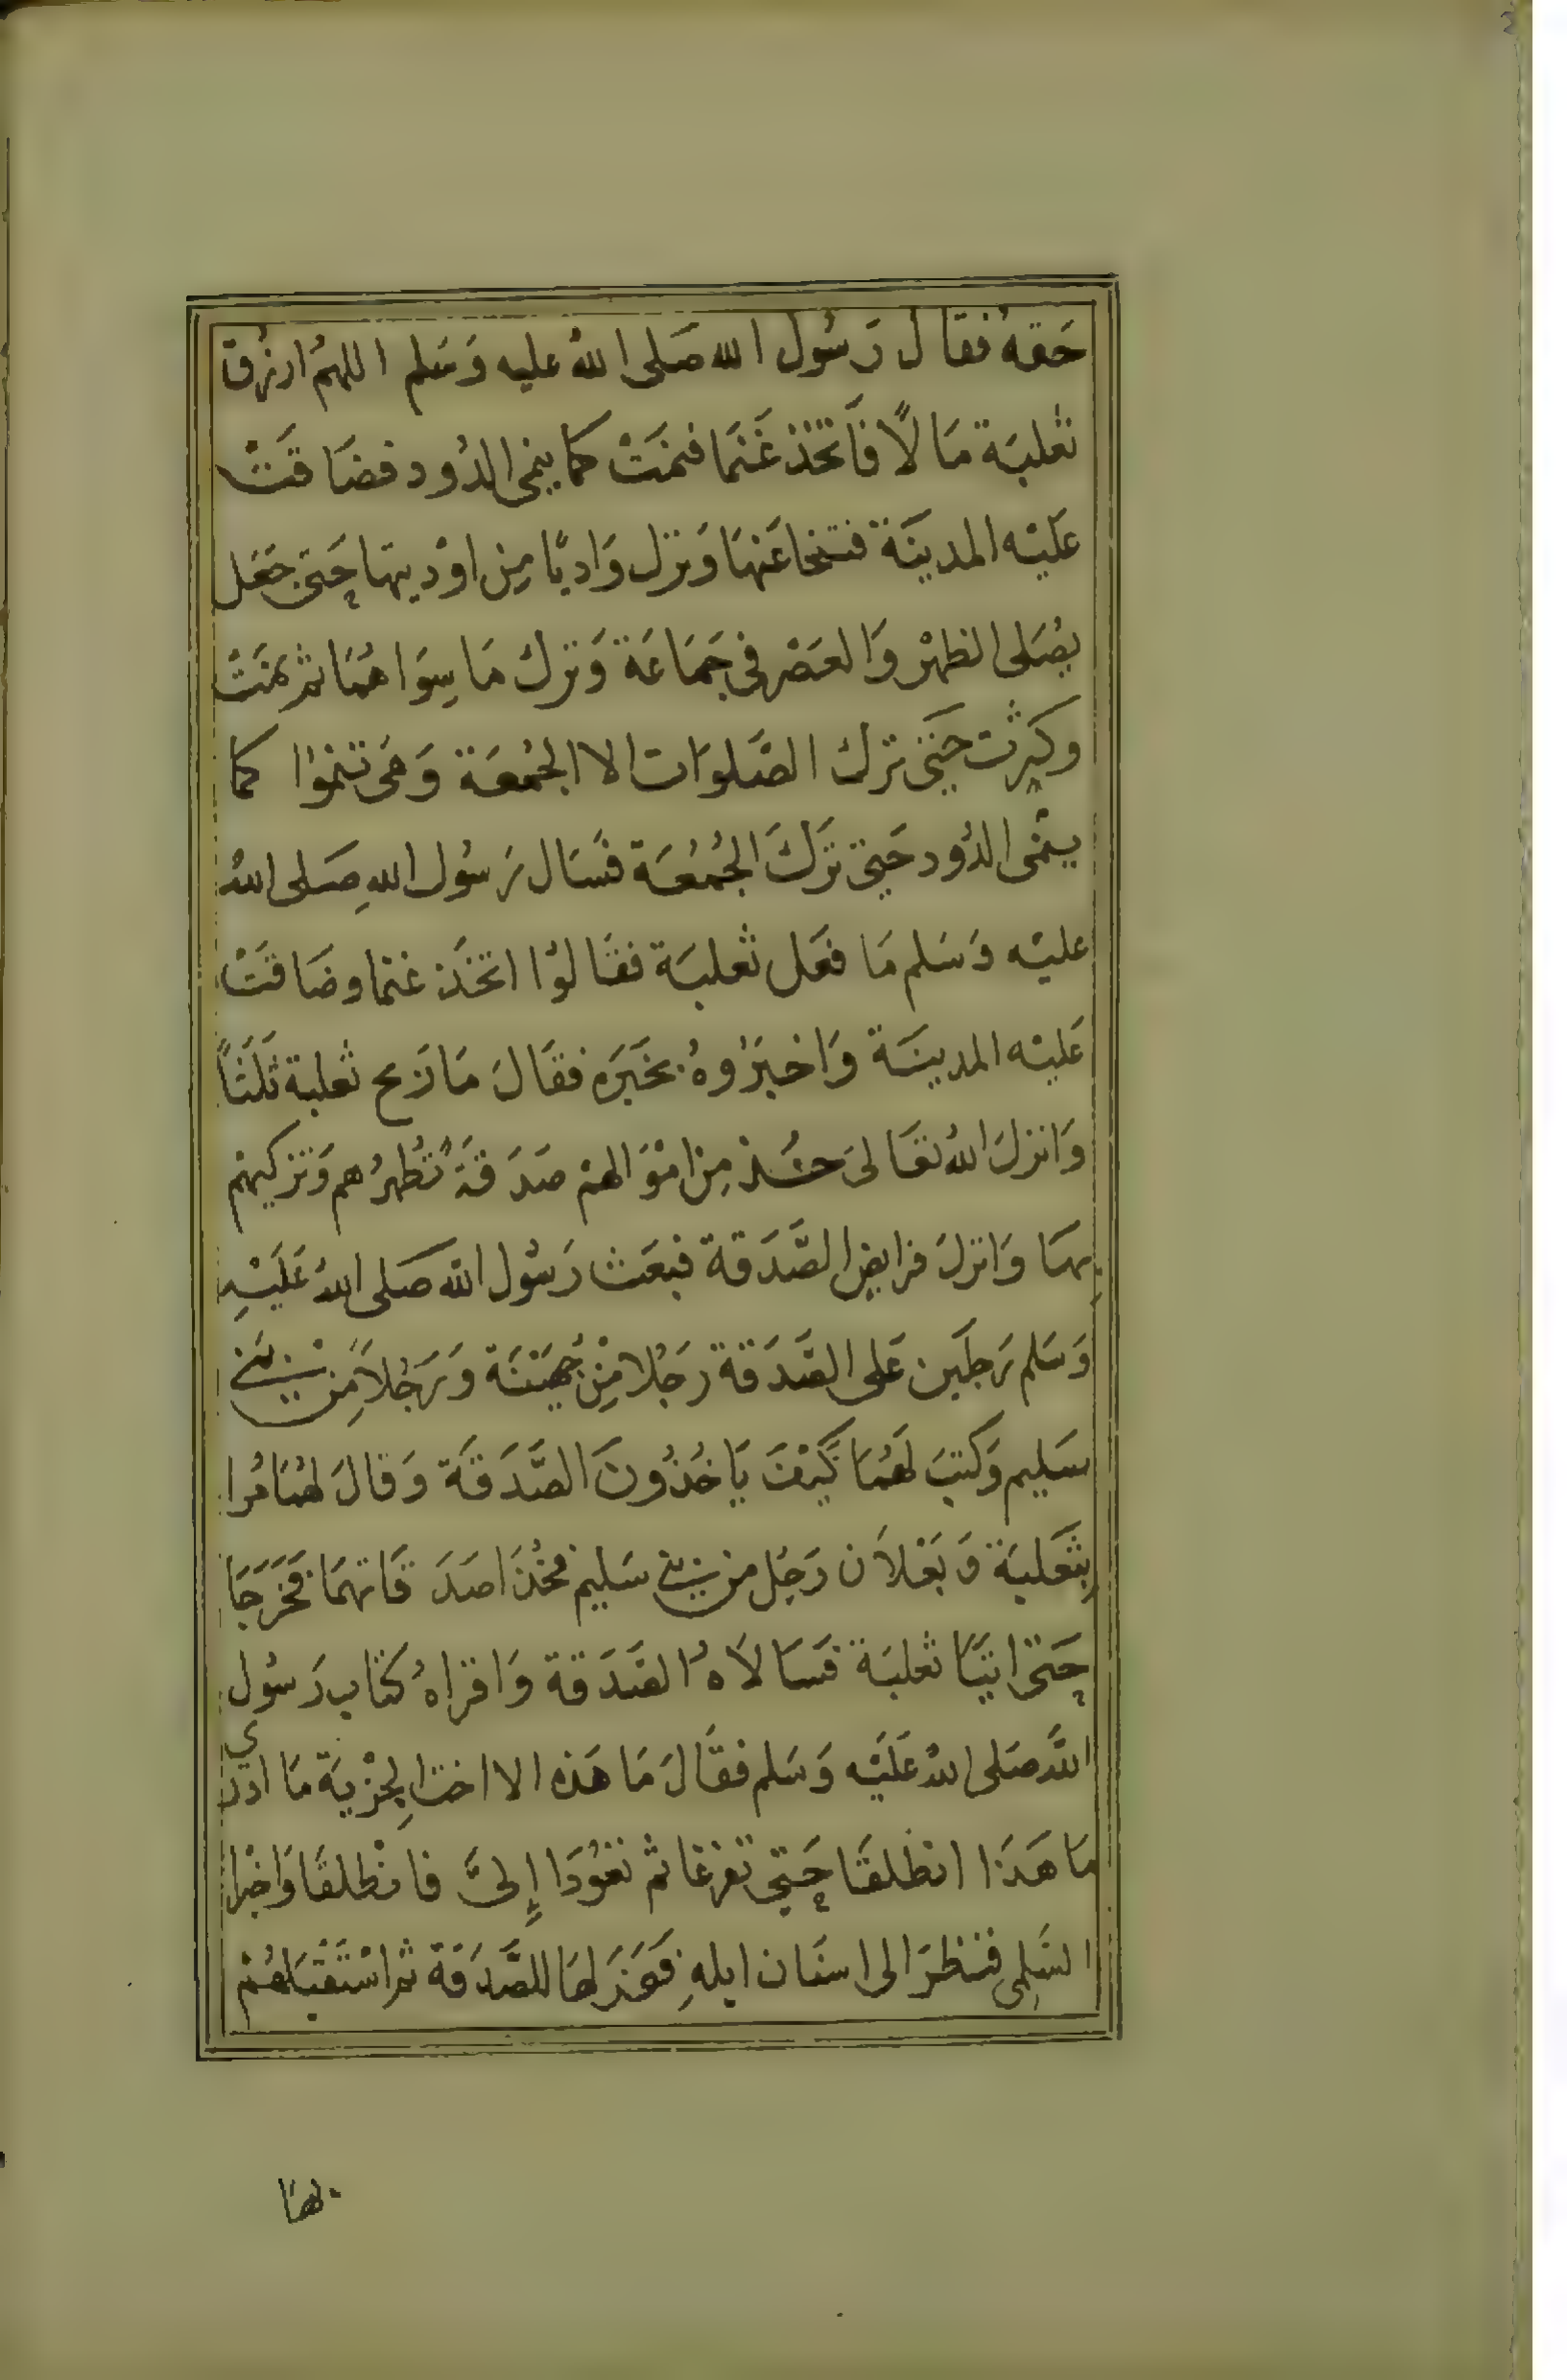 حَقهُ فقَال رَسُول الله صَلى اللهُ عليه وَسَلم اللهمُ ارزُق
ثعلبَة مَالًا فَاتخذ غَنَما فنمَتْ كما ينمى الدُود فضَاقَتْ
عَليْه المدينَة فتنحا عَنهَا وَنزل وَاديًا مِن اوْديتها حَتى جَعَل
يُصَلى الظهْر وَالعَصْر فى جَمَاعَة وَترك مَا سِوَاهُمَا ثم نمَتْ
وكثرت حَتى ترك الصَّلوَات الا الجُمُعَة وَهى تنموا كما
ينْمى الدُود حَتى تَركَ الجُمُعَة فسَال رَسُول اللهِ صَلى اللهُ
عليْه وَسَلم مَا فعَل ثعلبَة فقالوْا اتخَذ غنما وضَاقتْ
عَليْه المدينَة وَاخبرُوهُ بخَبَره فقَالَ مَا نزيح ثعلبة ثَلَثاً
وَانزلَ اللهُ تعَالىَ خُذ مِن امْوَالهمْ صَدَقَةً تُطهرُهم وَتزكيهم
بهَا وَانزلَ فرايض الصَّدَقة فبعَث رَسُول الله صَلى اللهُ عَلَيْهِ
وَسَلم رَجلَين عَلى الصَّدَقة رَجُلا مِنْ جُهَيْنَة وَرَجُلاً مِن بْنى
سَليم وَكتبَ لهُمَا كَيْفَ يَاخُذُونَ الصَّدَقَة وَقالَ لهُمَا مُرا
بثَعَلبَة وَبفلاَن رَجُل من بنى سَليم فخُذَا صَدَقَاتهمَا فخَرَجَا
حَتى اتيَا ثعلبَة فسَالاَهُ الصَّدَقة وَاقراهُ كتَاب رَسُول
اللَّه صَلى اللهُ عَلَيْه وَسَلم فقَالَ مَا هَذه الا اخت الجِزْيَة مَا ادرى
مَا هَذَا انطَلقَا حَتى تفرغا ثم تعُودَا إِلىَّ فانْطلقَا وَاخبرا
السّلِمى فنظرَ الى اسنَان ابلهِ فعَزَلهَا للصَّدَقَة ثم اسْتَقْبَلهُمْ
بهَا